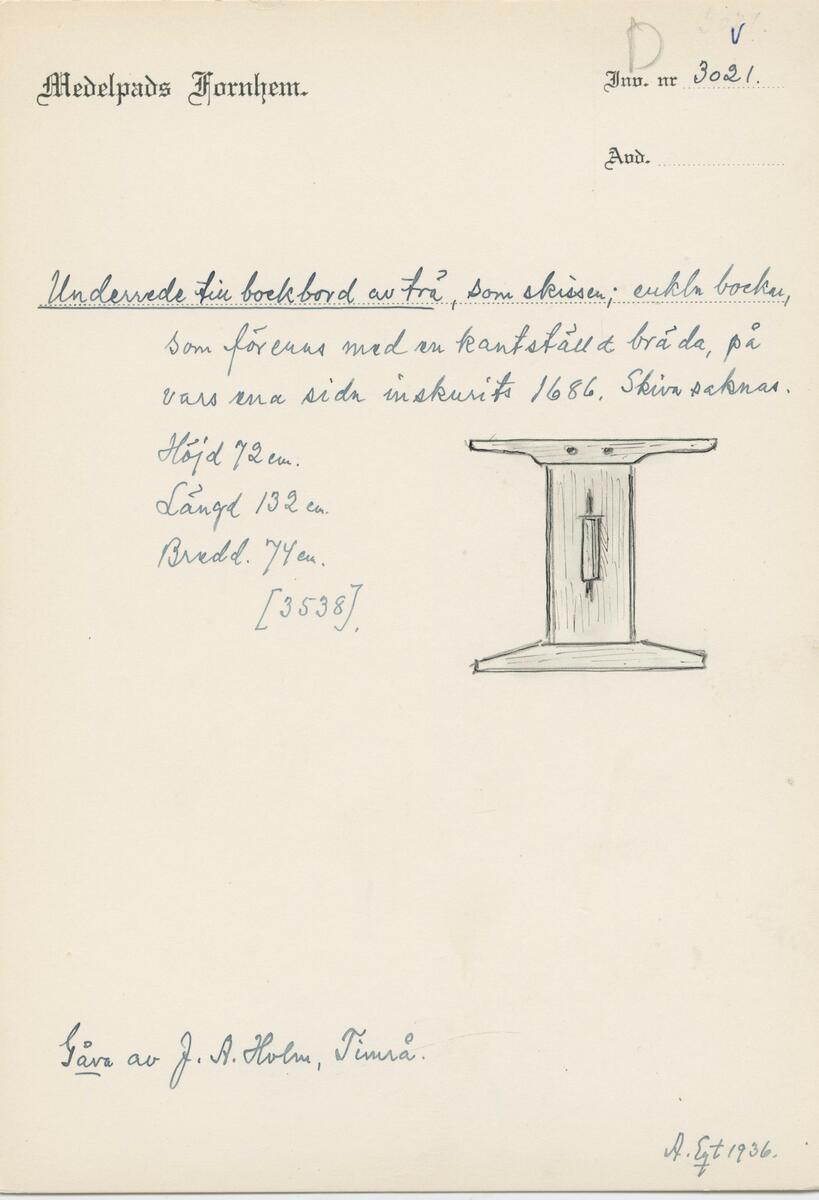 D v
Medelpads Fornhem.
Inv. nr 3021.
Avd.
Underrede till bockbord av trä, som skissen; enkla bockar,
som förenas med en kantställd bräda, på
vars ena sida inskurits 1686. Skiva saknas.
Höjd 72 cm.
Längd 132 cm.
Bredd. 74 cm.
[3538].
Gåva av J. A. Holm, Timrå.
A. Eqt 1936.